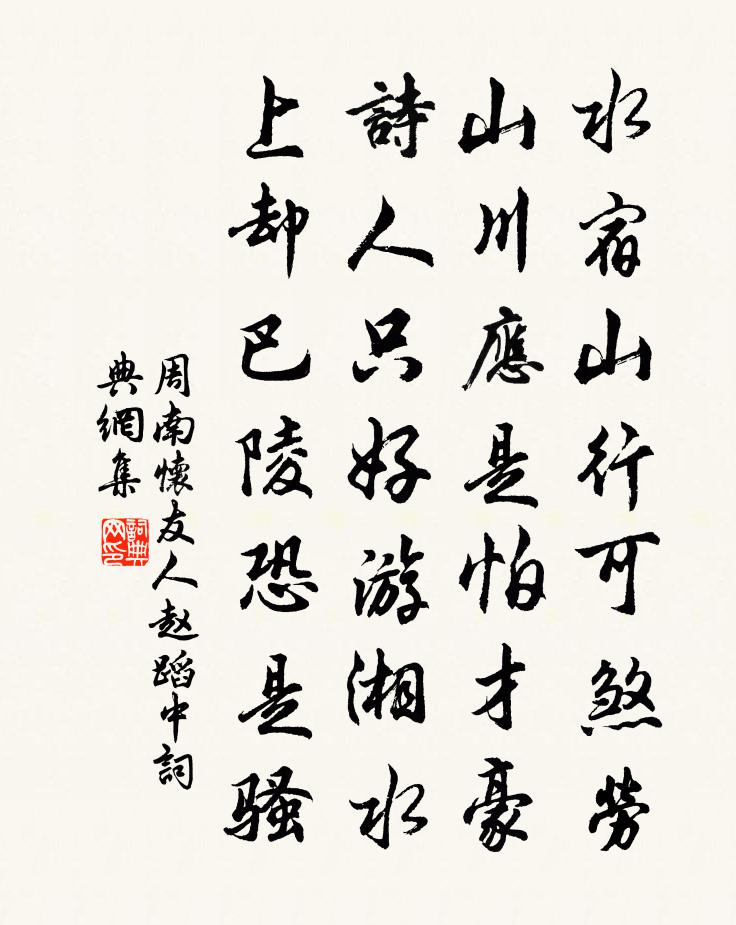 水宿山行可煞勞
山川應是怕才豪
詩人只好游湘水
上却巴陵恐是騷
周南懷友人赵蹈中詞
典網集
詞典
网印